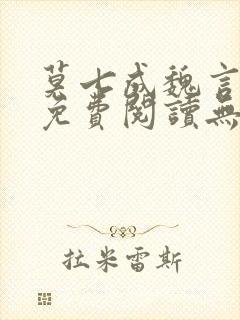 莫七成魏言
免費閱讀無
拉米雷斯